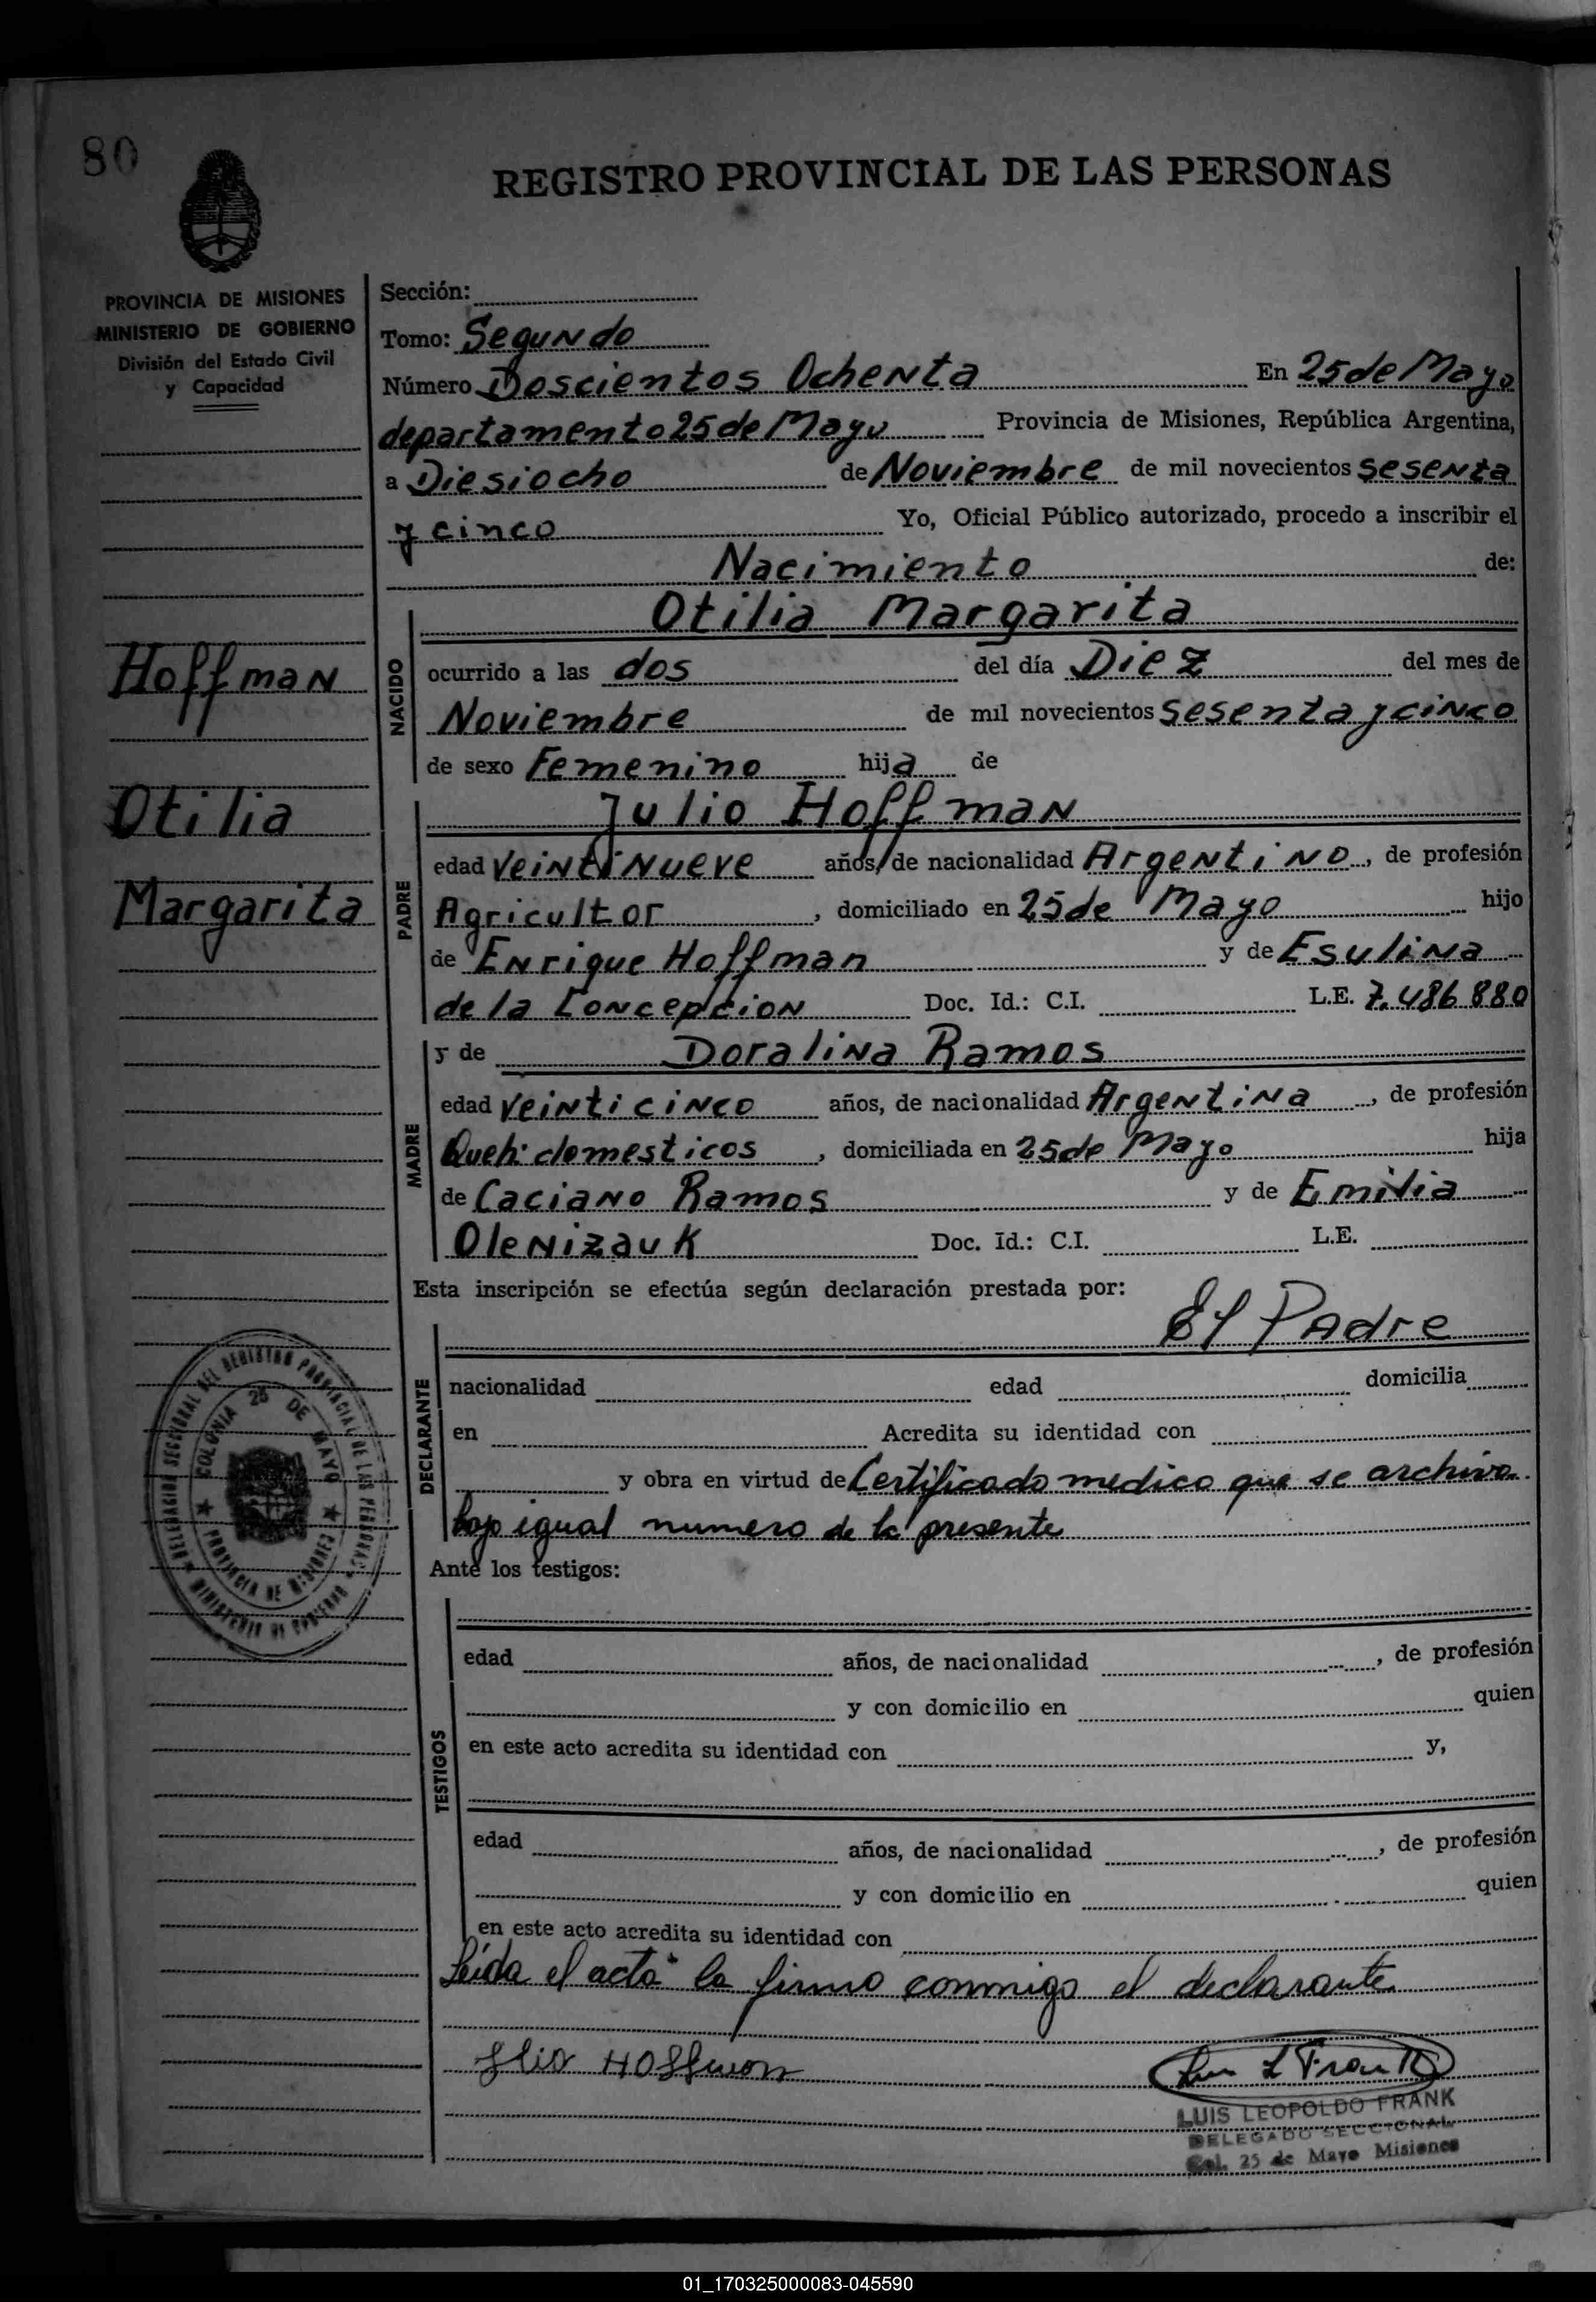 80
REGISTRO PROVINCIAL DE LAS PERSONAS
PROVINCIA DE MISIONES
MINISTERIO DE GOBIERNO
División del Estado Civil
y Capacidad
Hoffman
Otilia
Margarita
Sección:
Tomo: Segundo
Número Doscientos Ochenta En 25 de Mayo
departamento 25 de Mayo Provincia de Misiones, República Argentina,
a Diesiocho de Noviembre de mil novecientos sesenta
y cinco Yo, Oficial Público autorizado, procedo a inscribir el
Nacimiento de:
NACIDO
Otilia Margarita
ocurrido a las dos del día Diez del mes de
Noviembre de mil novecientos sesenta y cinco
de sexo Femenino hija de
PADRE
Julio Hoffman
edad veintinueve años, de nacionalidad Argentino, de profesión
Agricultor, domiciliado en 25 de Mayo hijo
de Enrique Hoffman y de Esulina
de la Concepcion Doc. Id.: C.I. L.E. 7.486.880
MADRE
y de Doralina Ramos
edad veinticinco años, de nacionalidad Argentina, de profesión
Queh. domesticos, domiciliada en 25 de Mayo hija
de Caciano Ramos y de Emilia
Olenizauk Doc. Id.: C.I. L.E.
Esta inscripción se efectúa según declaración prestada por:
El Padre
DECLARANTE
nacionalidad edad domicilia
en Acredita su identidad con
y obra en virtud de Certificado medico que se archiva
bajo igual numero de la presente
Ante los testigos:
TESTIGOS
edad años, de nacionalidad , de profesión
y con domicilio en quien
en este acto acredita su identidad con y,
edad años, de nacionalidad , de profesión
y con domicilio en quien
en este acto acredita su identidad con
Leída el acta la firma conmigo el declarante
DELEGACION SECCIONAL DEL REGISTRO PROVINCIAL DE LAS PERSONAS
COLONIA 25 DE MAYO
PROVINCIA DE MISIONES
MINISTERIO DE GOBIERNO
LUIS LEOPOLDO FRANK
DELEGADO SECCIONAL
Col. 25 de Mayo Misiones
01_170325000083-045590